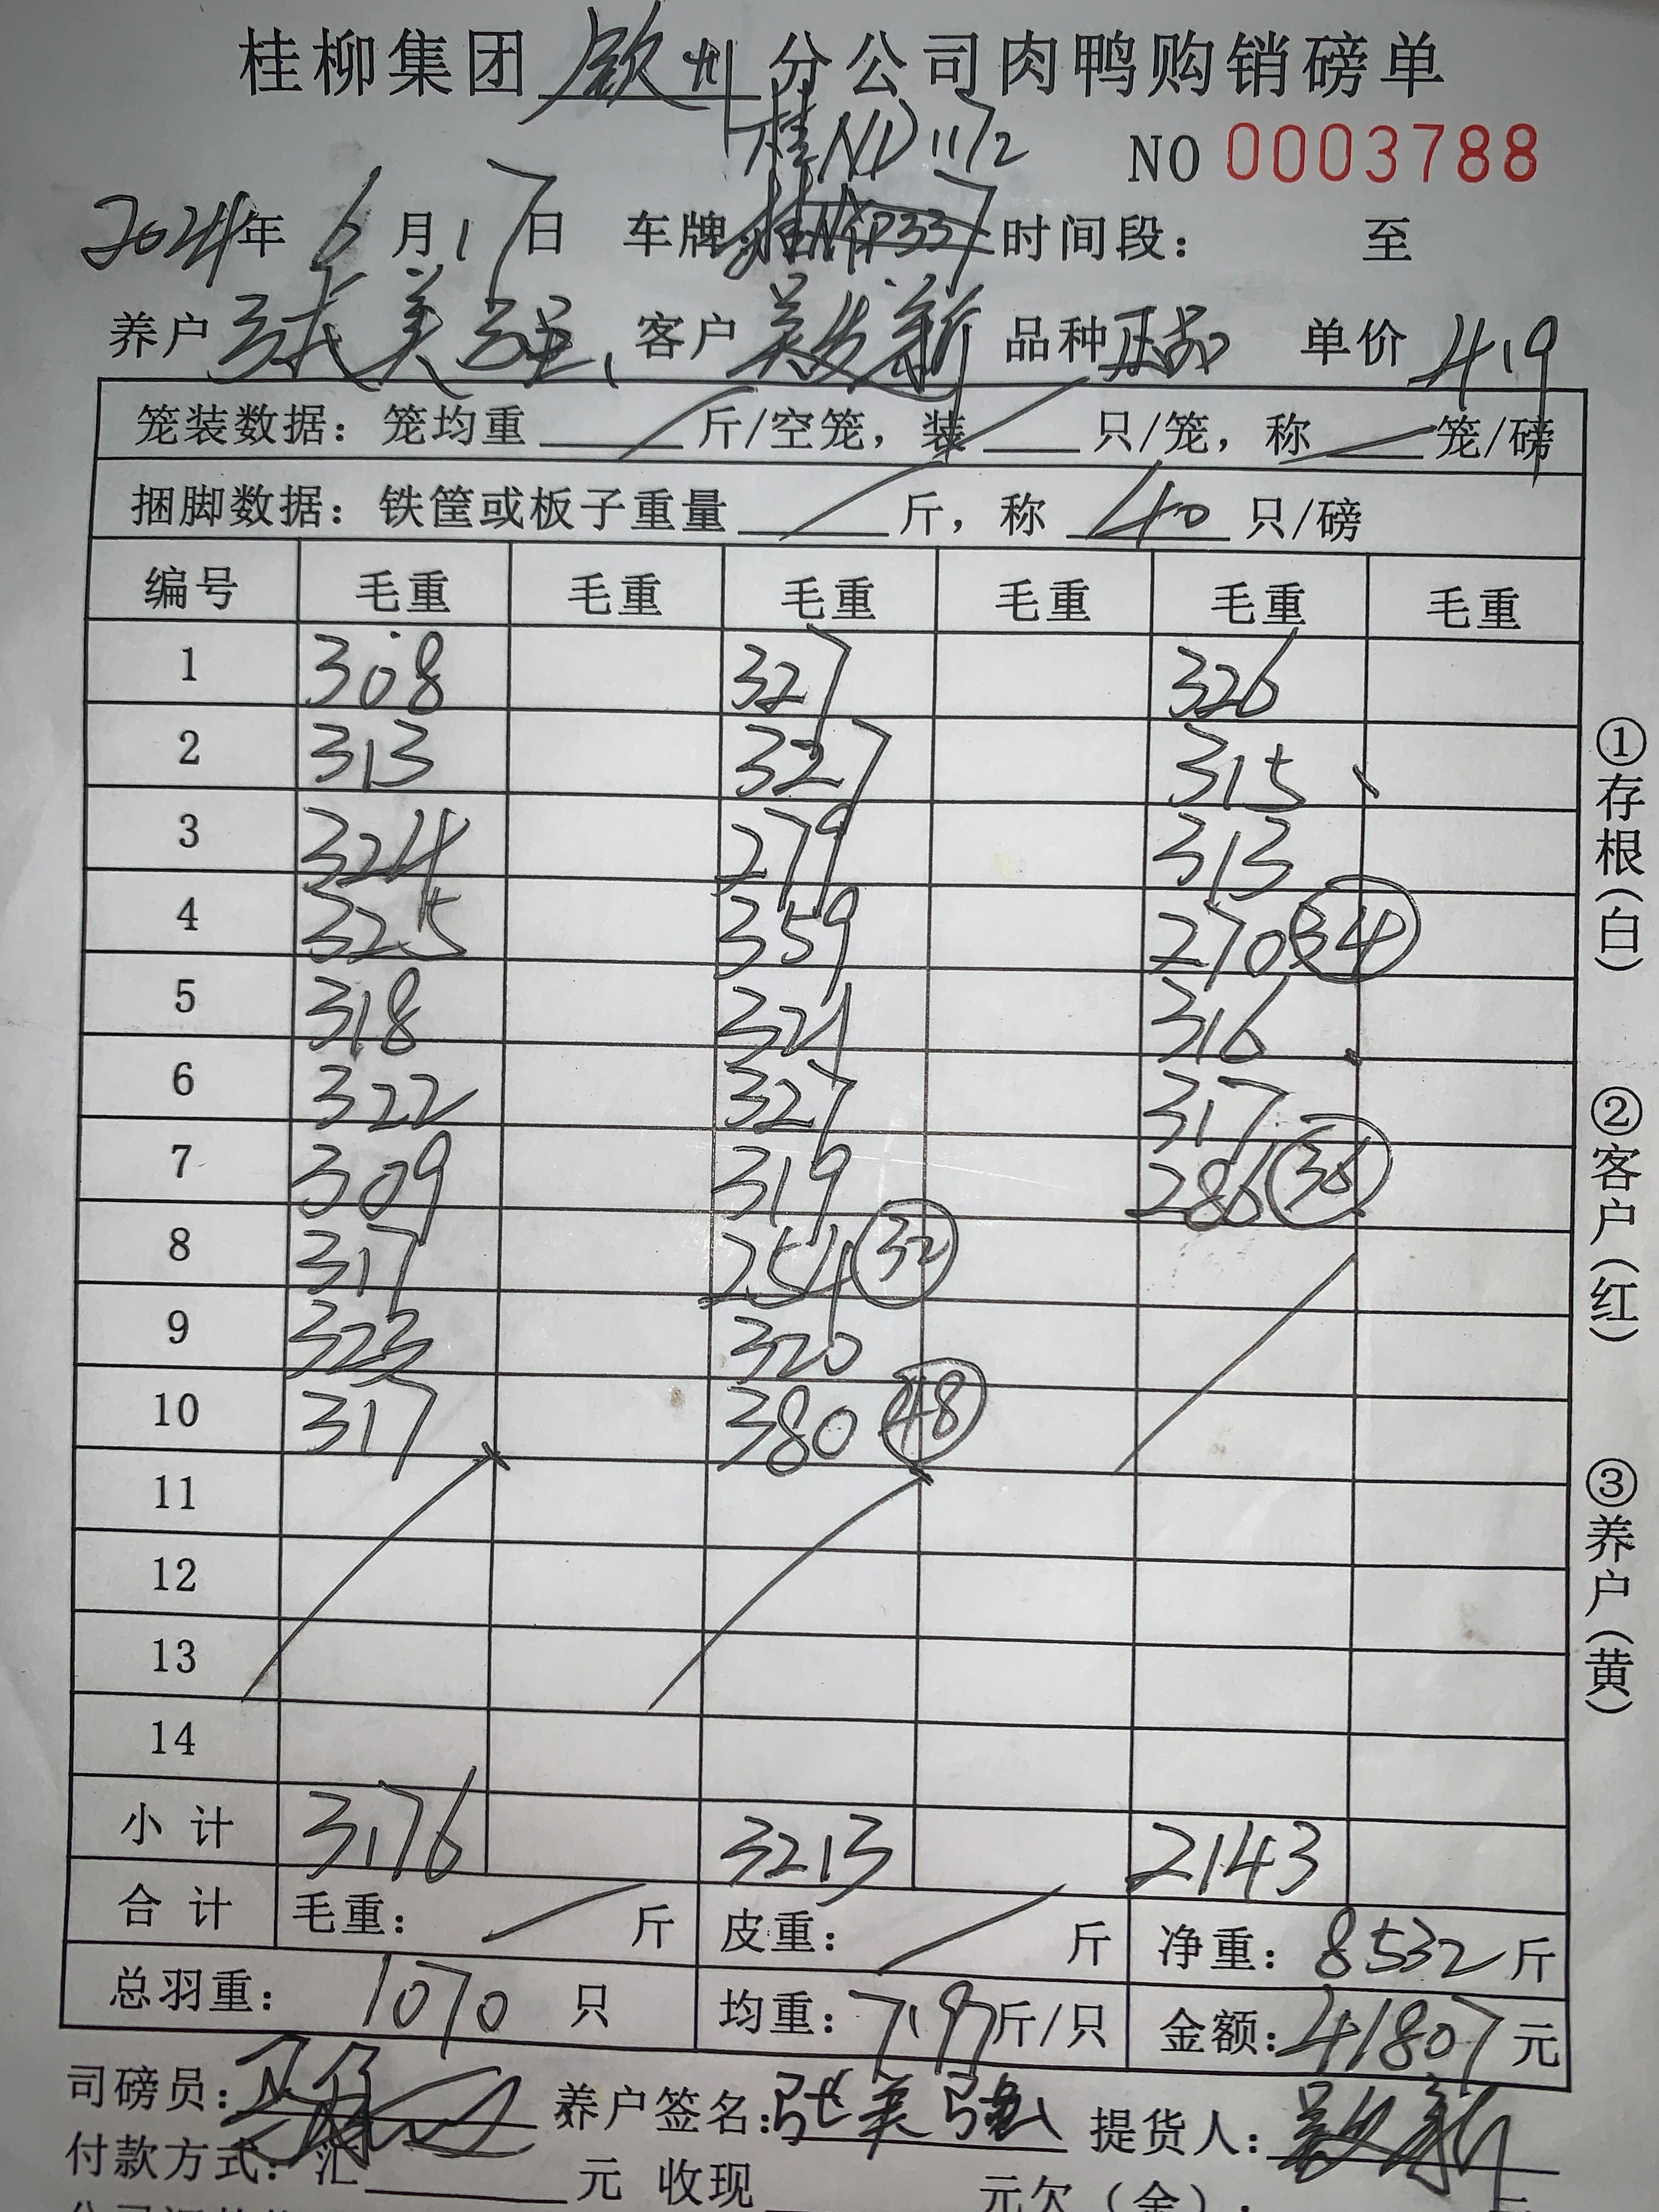 桂柳集团 钦州 分公司肉鸭购销磅单
桂ND1172
NO 0003788
2024年 6月17日 车牌: 时间段: 至
养户 张美强 客户 吴发新 品种 正品 单价 4.9
笼装数据: 笼均重 斤/空笼, 装 只/笼, 称 笼/磅
捆脚数据: 铁筐或板子重量 斤, 称 40 只/磅
编号 毛重 毛重 毛重 毛重 毛重 毛重
1 308 327 326
2 313 327 315
3 324 279 313
4 325 359 270 34
5 318 321 316
6 322 327 317
7 309 319 286 36
8 317 254 32
9 323 320
10 317 380 48
11
12
13
14
小计 3176 3213 2143
合计 毛重: 斤 皮重: 斤 净重: 8532 斤
总羽重: 1070 只 均重: 7.97 斤/只 金额: 41807 元
司磅员: 养户签名: 张美强 提货人: 吴发新
付款方式: 汇 元 收现 元欠(余):
①存根(白)
②客户(红)
③养户(黄)